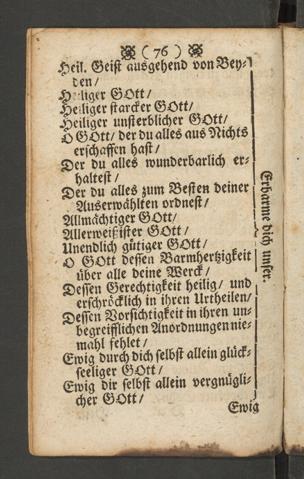 ( 76 )
Heil. Geist ausgehend von Bey-
den/
Heiliger GOtt/
Heiliger starcker GOtt/
Heiliger unsterblicher GOtt/
O GOtt/ der du alles aus Nichts
erschaffen hast/
Der du alles wunderbarlich er-
haltest/
Der du alles zum Besten deiner
Auserwählten ordnest/
Allmächtiger GOtt/
Allerweißister GOtt/
Unendlich gütiger GOtt/
O GOtt dessen Barmhertzigkeit
über alle deine Werck/
Dessen Gerechtigkeit heilig/ und
erschröcklich in ihren Urtheilen/
Dessen Vorsichtigkeit in ihren un-
begreifflichen Anordnungen nie-
mahl fehlet/
Ewig durch dich selbst allein glück-
seeliger GOtt/
Ewig dir selbst allein vergnügli-
cher GOtt/
Erbarme dich unser.
Ewig